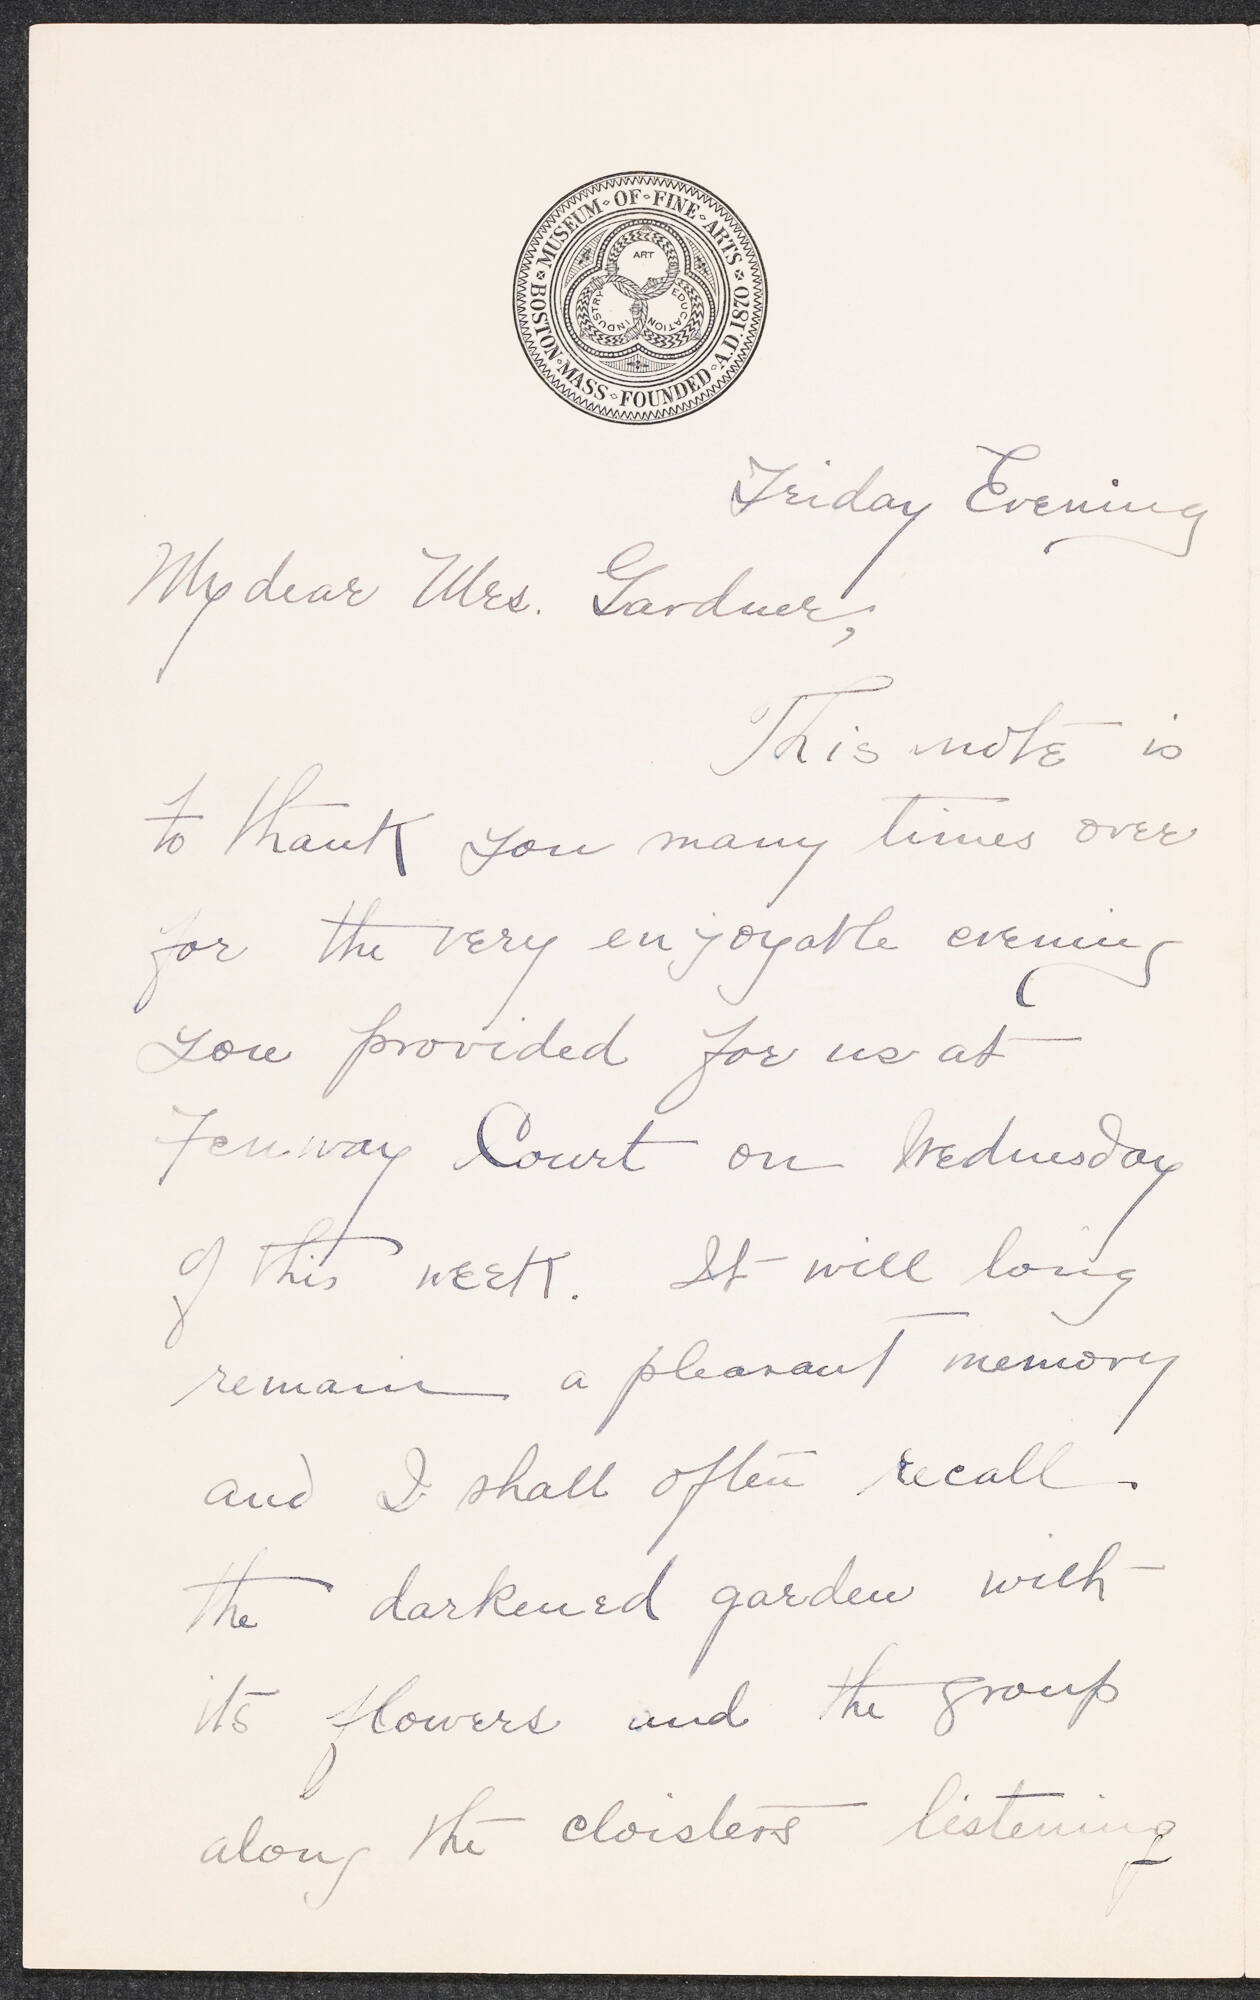 BOSTON · MASS · FOUNDED · A.D. 1870 · MUSEUM · OF · FINE · ARTS
ART
INDUSTRY
EDUCATION
Friday Evening
My dear Mrs. Gardner,
This note is
to thank you many times over
for the very enjoyable evening
you provided for us at
Fenway Court on Wednesday
of this week. It will long
remain a pleasant memory
and I shall often recall
the darkened garden with
its flowers and the group
along the cloisters listening